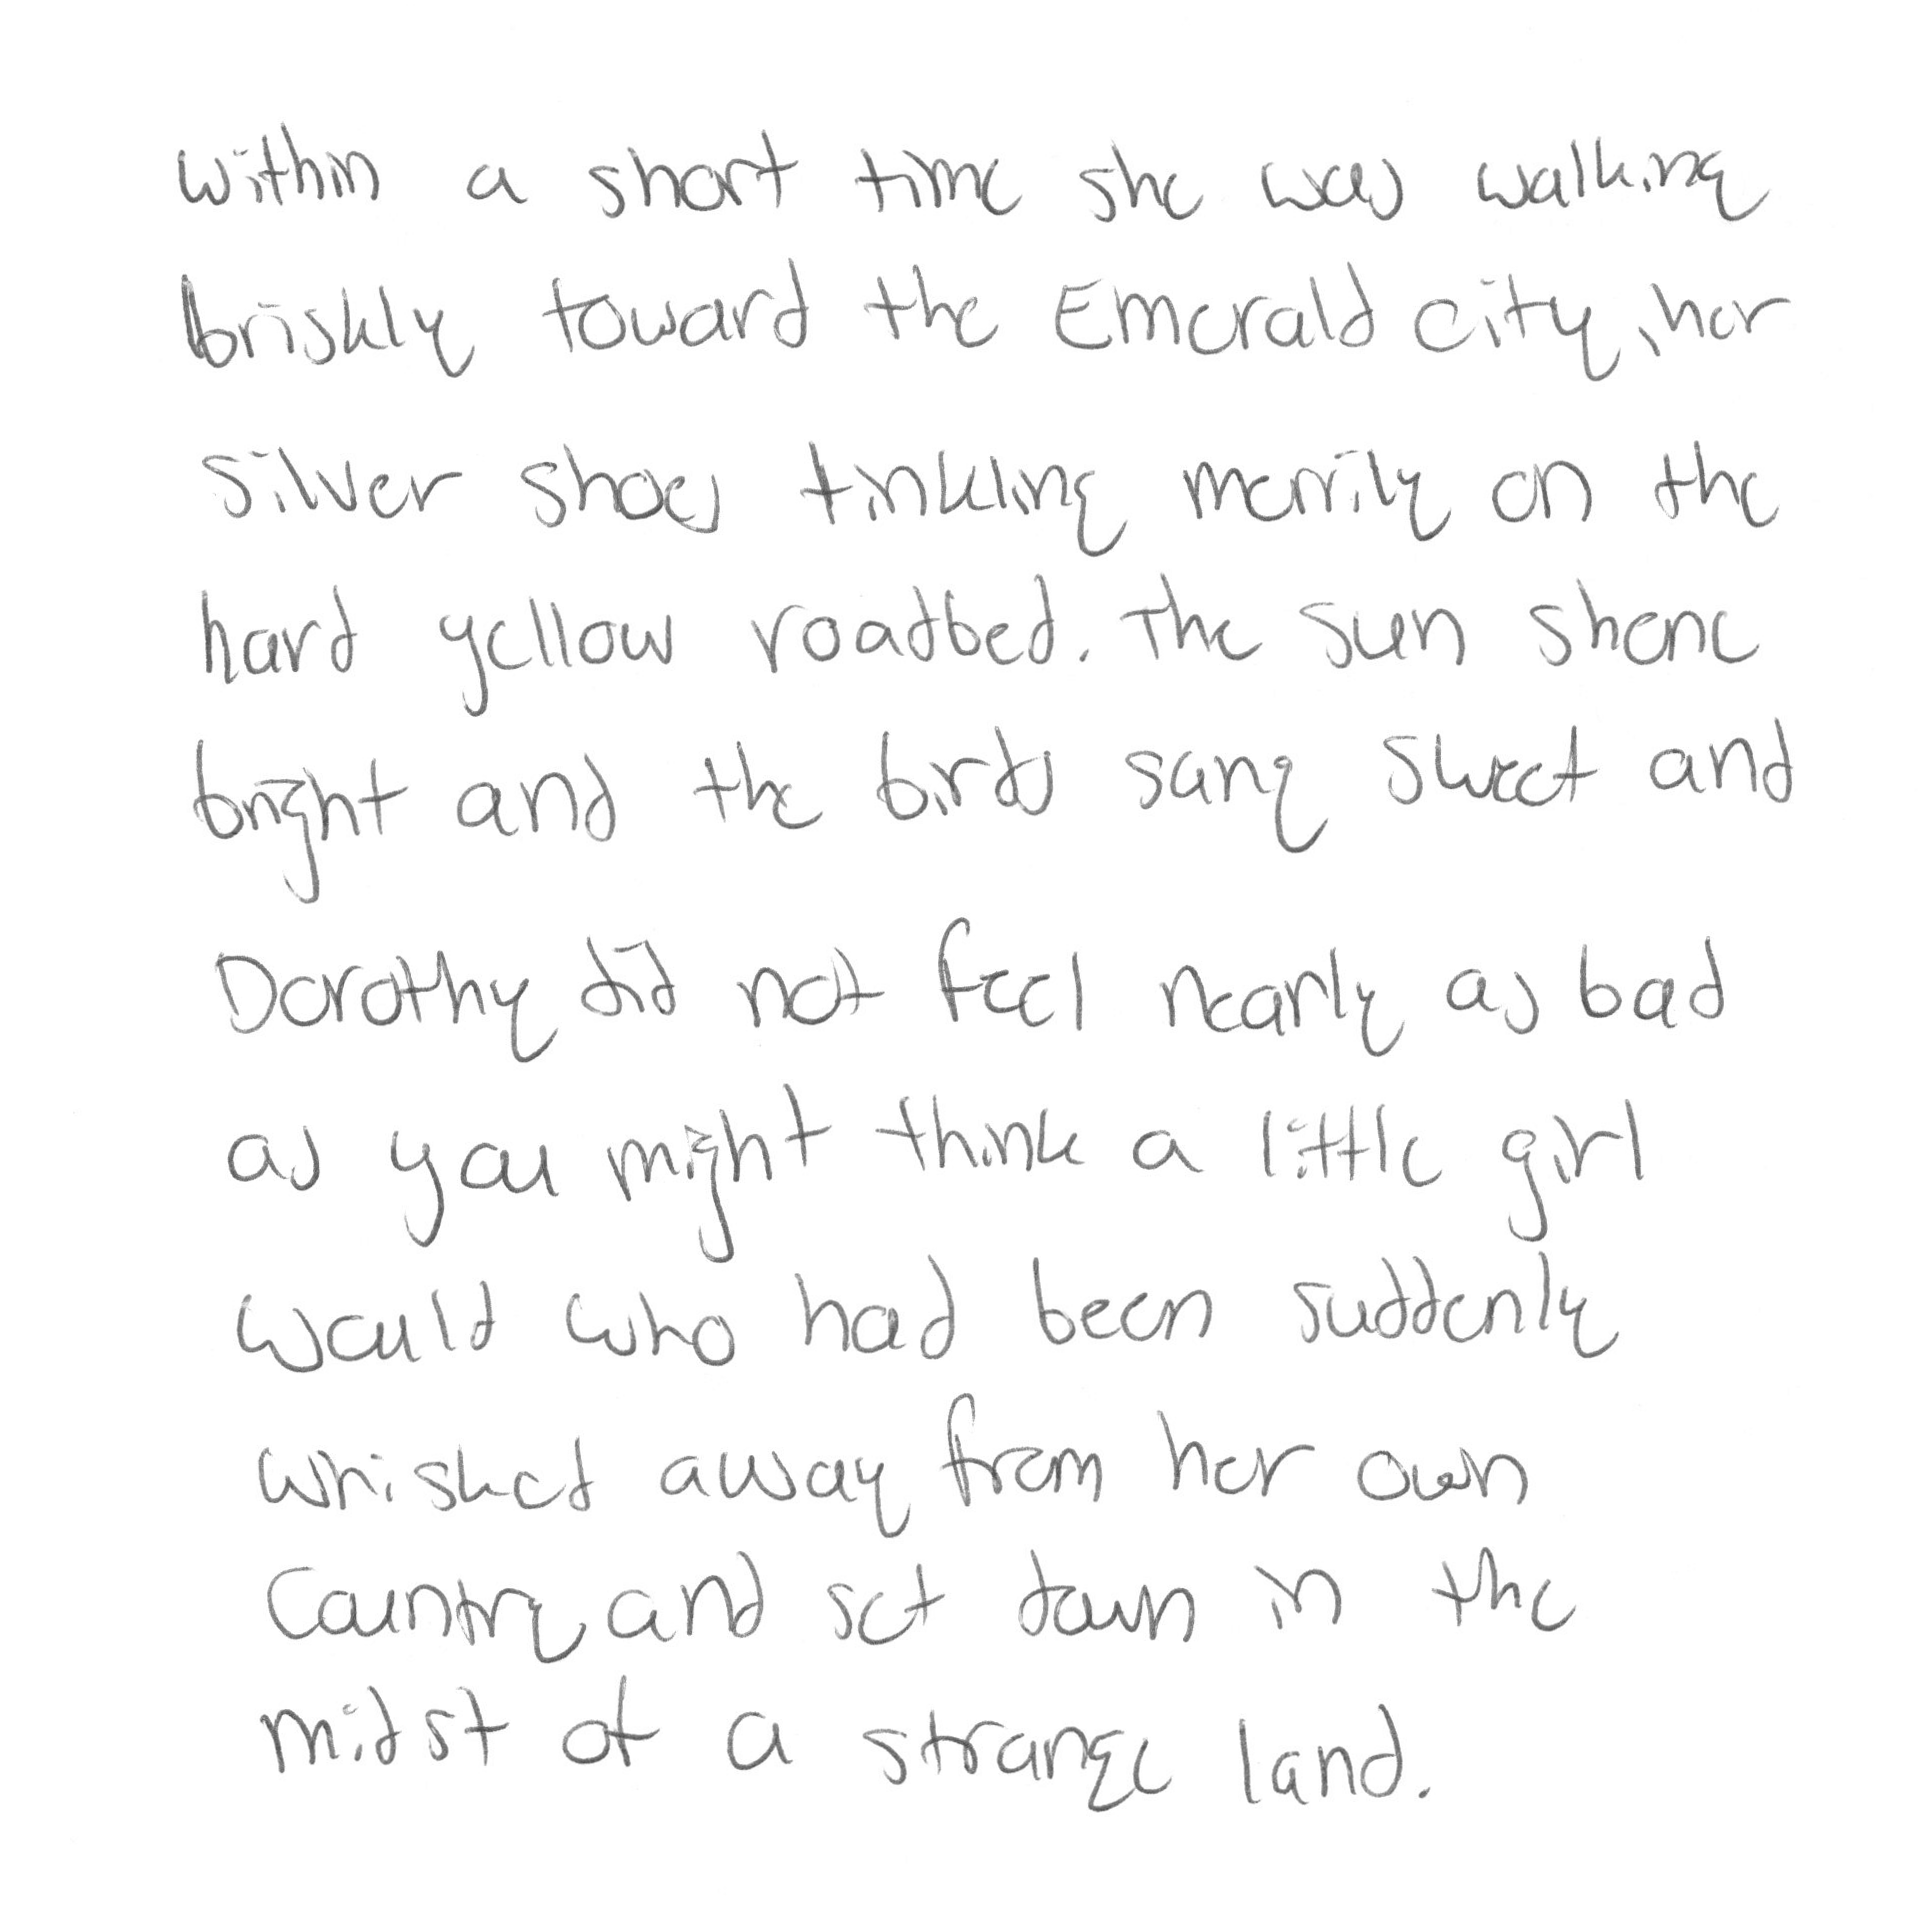 within a short time she was walking
briskly toward the Emerald City, her
silver shoes tinkling merrily on the
hard yellow roadbed. The sun shone
bright and the birds sang sweet and
Dorothy did not feel nearly as bad
as you might think a little girl
would who had been suddenly
whisked away from her own
country and set down in the
midst of a strange land.